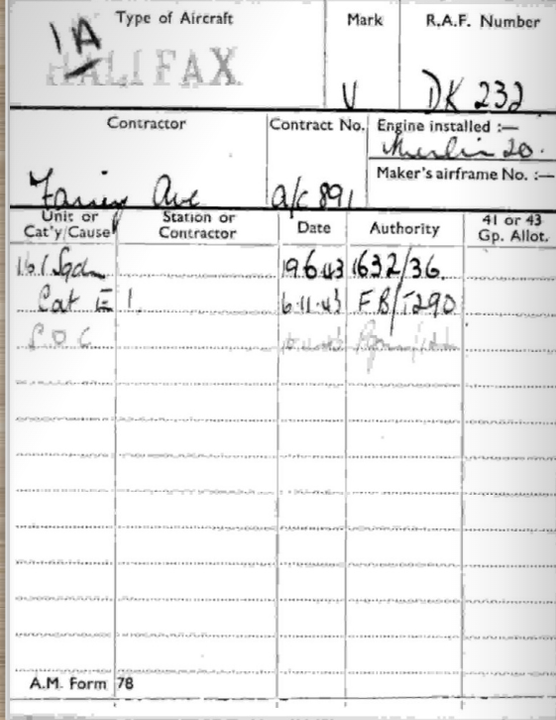 Type of Aircraft Mark R.A.F. Number
1A
HALIFAX V DK 232
Contractor Contract No. Engine installed :—
Merlin 20.
Maker's airframe No. :—
Fairey Ave a/c 891
Unit or Cat'y/Cause Station or Contractor Date Authority 41 or 43 Gp. Allot.
161 Sqdn 19.6.43 1632/36.
Cat E 1. 6.11.43 FB/T290
S.O.C
A.M. Form 78